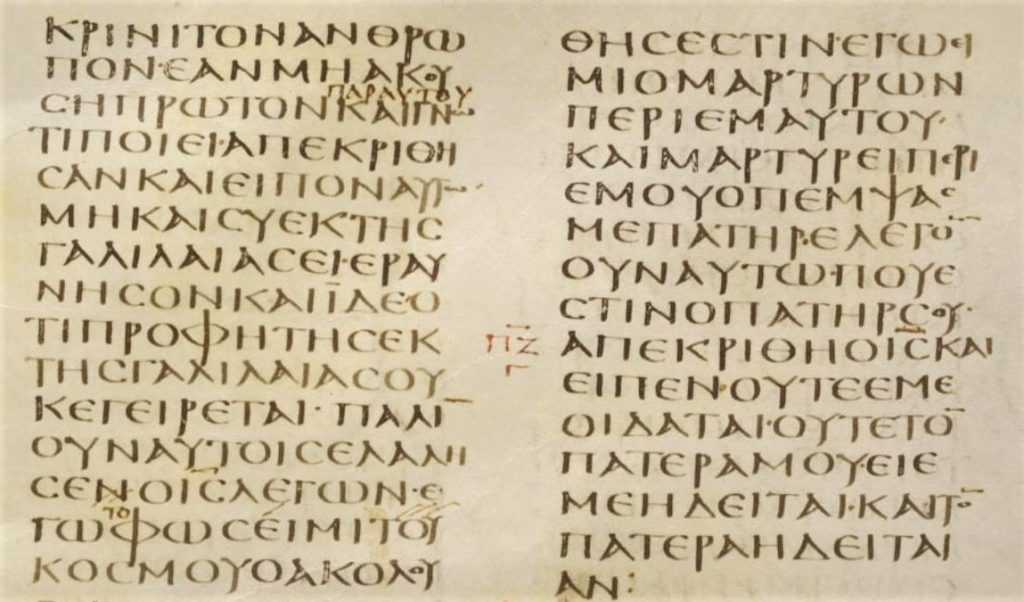 ΚΡΙΝΙΤΟΝΑΝΘΡΩ
ΠΟΝ·ΕΑΝΜΗΑΚΟΥ
ΠΑΡΑΥΤΟΥ
ϹΗΠΡΩΤΟΝΚΑΙΓΝΩ
ΤΙΠΟΙΕΙ·ΑΠΕΚΡΙΘΗ
ϹΑΝΚΑΙΕΙΠΟΝΑΥΤΩ·
ΜΗΚΑΙϹΥΕΚΤΗϹ
ΓΑΛΙΛΑΙΑϹΕΙ·ΕΡΑΥ
ΝΗϹΟΝΚΑΙΪΔΕΟ
ΤΙΠΡΟΦΗΤΗϹΕΚ
ΤΗϹΓΑΛΙΛΑΙΑϹΟΥ
ΚΕΓΕΙΡΕΤΑΙ· ΠΑΛΙ̅
ΟΥΝΑΥΤΟΙϹΕΛΑΛΗ
ϹΕΝ·ΟΙ̅Ϲ̅ΛΕΓΩΝ·Ε
ΤΟ
ΓΩΦΩϹΕΙΜΙΤΟΥ
ΚΟϹΜΟΥΟΑΚΟΛΟΥ
ΠΖ̅
Γ
ΘΗϹΕϹΤΙΝ·ΕΓΩΕΙ
ΜΙΟΜΑΡΤΥΡΩΝ
ΠΕΡΙΕΜΑΥΤΟΥ·
ΚΑΙΜΑΡΤΥΡΕΙΠΕΡΙ
ΕΜΟΥΟΠΕΜΨΑϹ
ΜΕΠΑΤΗΡ·ΕΛΕΓΟ̅
ΟΥΝΑΥΤΩ·ΠΟΥΕ
ϹΤΙΝΟΠΑΤΗΡϹΟΥ·
ΑΠΕΚΡΙΘΗΟΙ̅Ϲ̅ΚΑΙ
ΕΙΠΕΝ·ΟΥΤΕΕΜΕ
ΟΙΔΑΤΑΙ·ΟΥΤΕΤΟ̅
ΠΑΤΕΡΑΜΟΥ·ΕΙΕ
ΜΕΗΔΕΙΤΑΙ·ΚΑΙΤΟ̅
ΠΑΤΕΡΑΗΔΕΙΤΑΙ
ΑΝ: